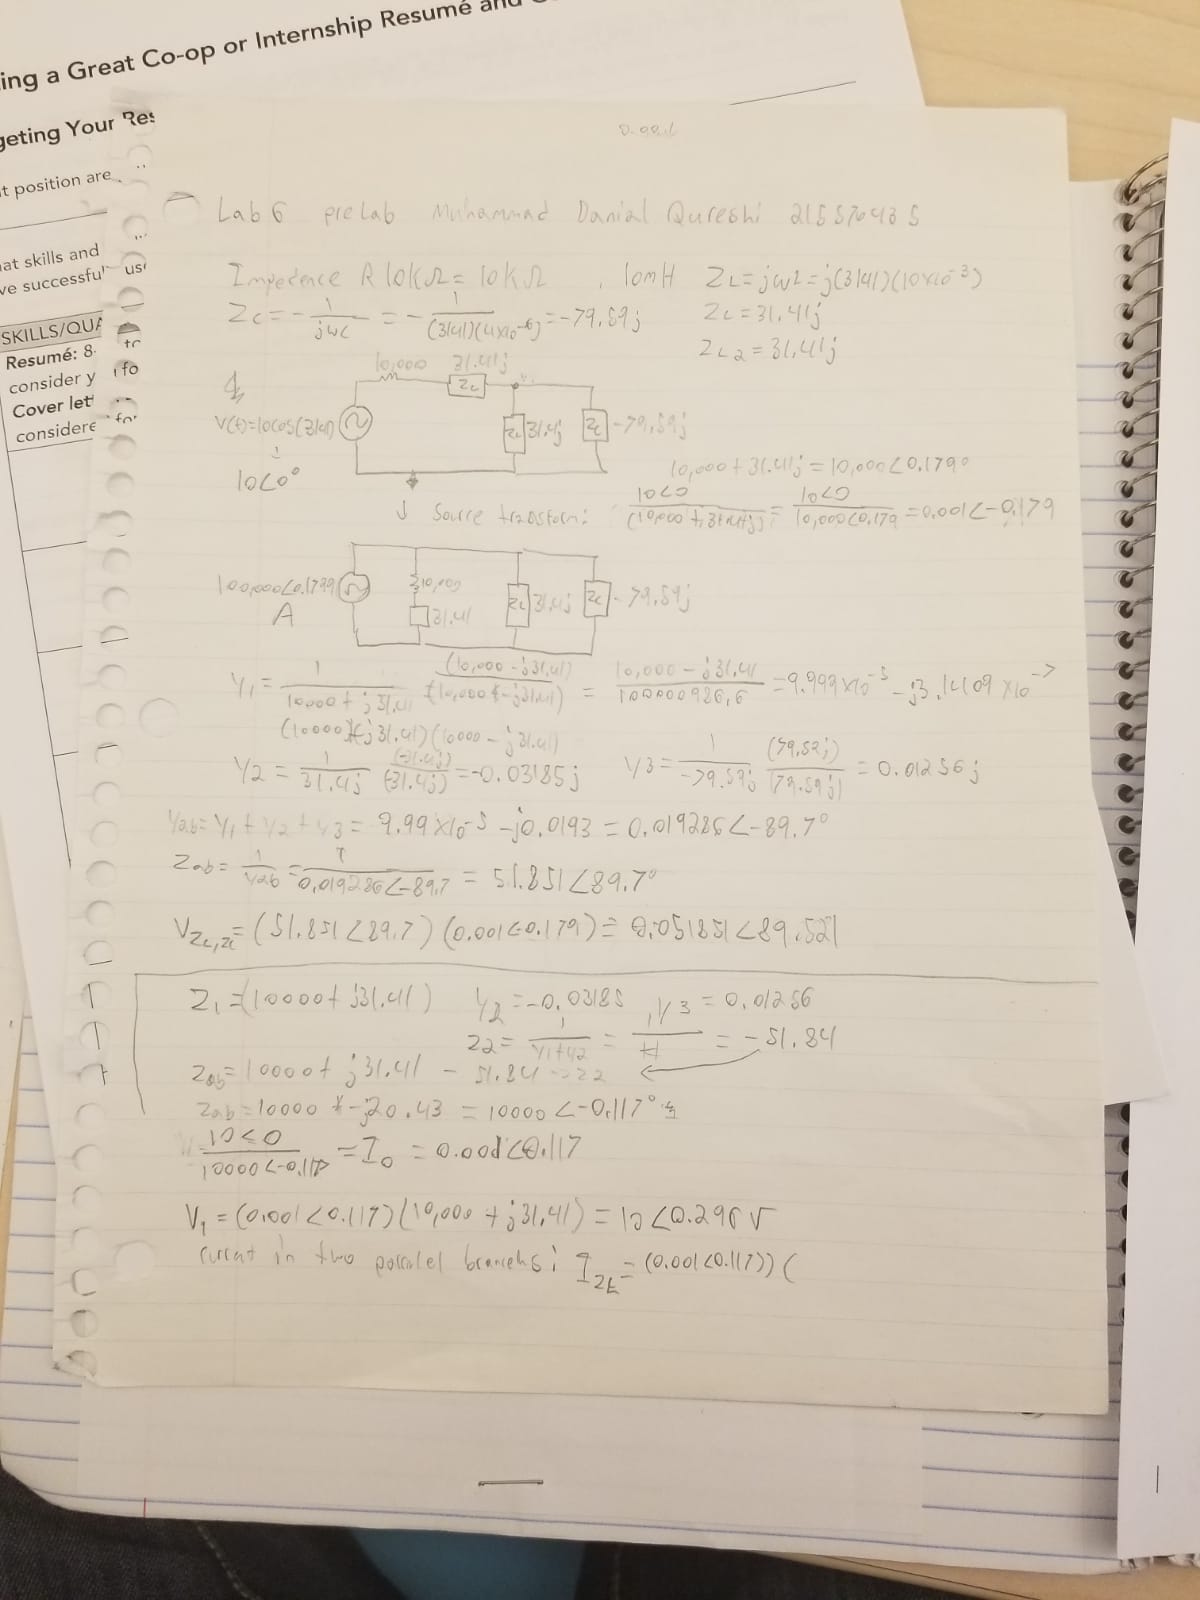 ing a Great Co-op or Internship Resumé and
geting Your Res
t position are
at skills and
ve successful
use
SKILLS/QUA
Resumé: 8
consider y
fo
Cover let
considere
for
Lab 6 prelab Muhammad Danial Qureshi 215570435
Impedence R 10KΩ = 10KΩ , 10mH ZL = jωL = j(3141)(10x10^-3)
Zc = - 1/jωc = - 1/(3141)(4x10^-6) = -79.59j
ZL = 31.41j
ZL2 = 31.41j
10,000 31.41j
V(t)=10cos(3141) 31.4j Zc -79.59j
10<0°
10,000 + 31.41j = 10,000<0.179°
↓ Source transform: 10<0/(10,000 + 31.41j) = 10<0/10,000<0.179 = 0.001<-0.179
100,000<0.1799 10,000 31.41 ZL 31.4j Zc -79.59j
A
Y1 = 1/10000 + j31.41 (10,000 - j31.41)/(10,000 - j31.41) = 10,000 - j31.41/100000986.6 = 9.999 x10^-5 - j3.1409 x10^-7
(10000 + j31.41)(10000 - j31.41)
Y2 = 1/31.4j (-31.4j)/(-31.4j) = -0.03185j Y3 = 1/-79.59j (79.59j)/(79.59j) = 0.01256j
Yab = Y1 + Y2 + Y3 = 9.99 x10^-5 - j0.0193 = 0.019286<-89.7°
Zab = 1/Yab = 1/0.019286<-89.7 = 51.851<89.7°
VZL,Zc = (51.851<89.7)(0.001<-0.179) = 0.051851<89.521
Z1 = (10000 + j31.41) Y2 = -0.03185 , Y3 = 0.01256
Z2 = 1/Y1+Y2 = = -51.84
Zab = 10000 + j31.41 - 51.84 → Z2
Zab = 10000 - j20.43 = 10000<-0.117°
10<0/10000<-0.117 = I0 = 0.001<0.117
V1 = (0.001<0.117)(10,000 + j31.41) = 10<0.296 V
current in two parallel branches: IZL = (0.001<0.117))(